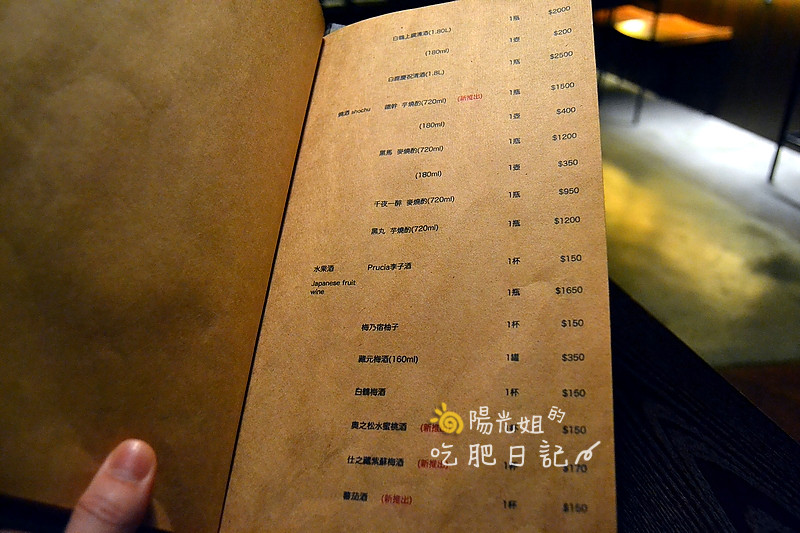 白鶴上選清酒(1.80L) 1瓶 $2000
(180ml) 1壺 $200
白鹿慶祝清酒(1.8L) 1瓶 $2500
燒酒 shochu 鐵幹 芋燒酌(720ml) (新推出) 1瓶 $1500
(180ml) 1壺 $400
黑馬 麥燒酌(720ml) 1瓶 $1200
(180ml) 1壺 $350
千夜一醉 麥燒酌(720ml) 1瓶 $950
黑丸 芋燒酌(720ml) 1瓶 $1200
水果酒 Prucia李子酒 1杯 $150
Japanese fruit
wine 1瓶 $1650
梅乃宿柚子 1杯 $150
藏元梅酒(160ml) 1罐 $350
白鶴梅酒 1杯 $150
奧之松水蜜桃酒 $150
仕之藏紫蘇梅酒 (新推出) $170
蕃茄酒 (新推出) 1杯 $150
陽光姐的
吃肥日記